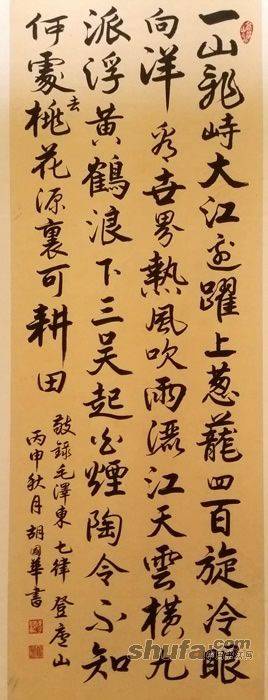 一山飛峙大江邊躍上葱蘢四百旋冷眼
向洋看世界熱風吹雨灑江天雲橫九
派浮黃鶴浪下三吳起白煙陶令不知
何處去桃花源裏可耕田
敬錄毛澤東七律登廬山
丙申秋月胡國華書
shufa.com